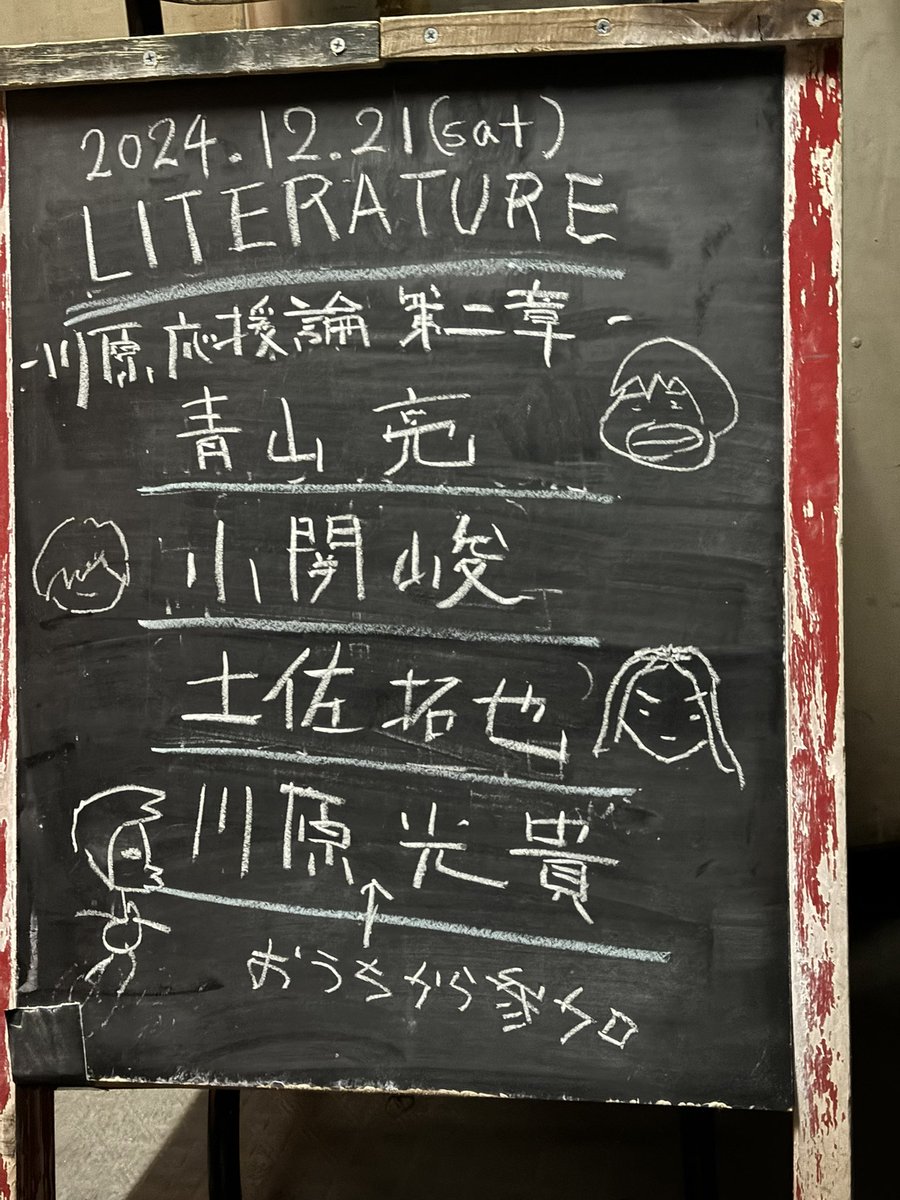 2024.12.21(sat)
LITERATURE
-川原応援論 第二章-
青山 亮
小関 峻
土佐 拓也
川原 光貴
↑
おうちから参加